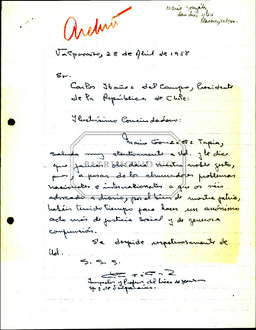 Archivo
Mario González
Valparaíso, 28 de Abril de 1958
Sr.
Carlos Ibáñez del Campo, Presidente
de la República de Chile:
Ilustrísimo Conciudadano:
Mario González Tapia,
saluda muy atentamente a Ud. y le dice
que jamás olvidará vuestro noble gesto,
pues, a pesar de los abrumadores problemas
nacionales e internacionales a que os veis
abocado a diario, por el bien de nuestra patria,
habéis tenido tiempo para hacer un
acto más de justicia social y de generosa
comprensión.
Se despide respetuosamente de
Ud.
S. S. S.
de Valparaíso.